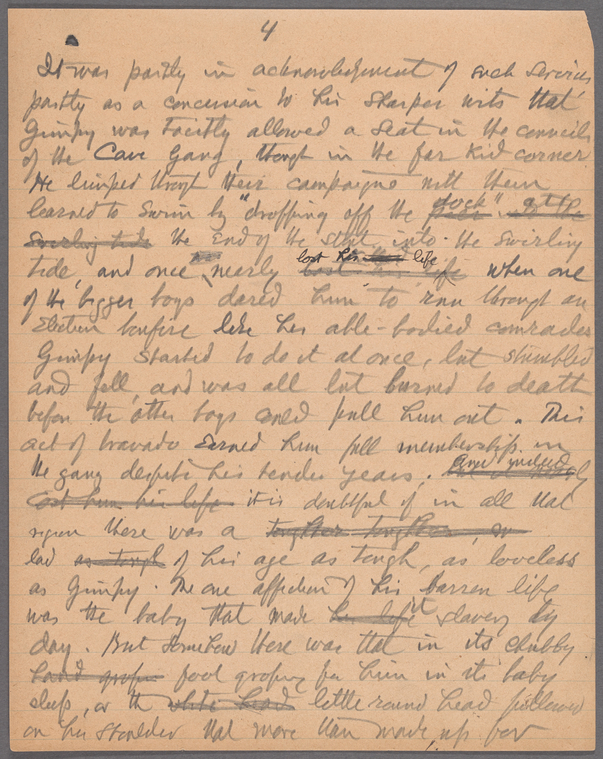 4
It was partly in acknowledgement of such services
partly as a concession to his sharper wits that
Gimpy was tacitly allowed a seat in the councils
of the Cave Gang, though in the far kid corner
He limped through their campaigns with them
learned to swim by "dropping off the dock" at the
swirling tide the end of the into the swirling
tide, and once nearly lost his life when one
of the bigger boys dared him to run through an
Election bonfire like his able-bodied comrades
Gimpy started to do it at once, but stumbled
and fell, and was all but burned to death
before the other boys could pull him out. This
act of bravado earned him full membership in
the gang despite his tender years. and indeed
cost him his life it is doubtful if in all that
region there was a tougher
lad as tough of his age as tough, as loveless
as Gimpy. The one affection of his barren life
was the baby that made his life it slavery by
day. But somehow there was that in its chubby
hand foot groping for him in its baby
sleep, or the white head little round head pillowed
on his shoulder that more than made up for